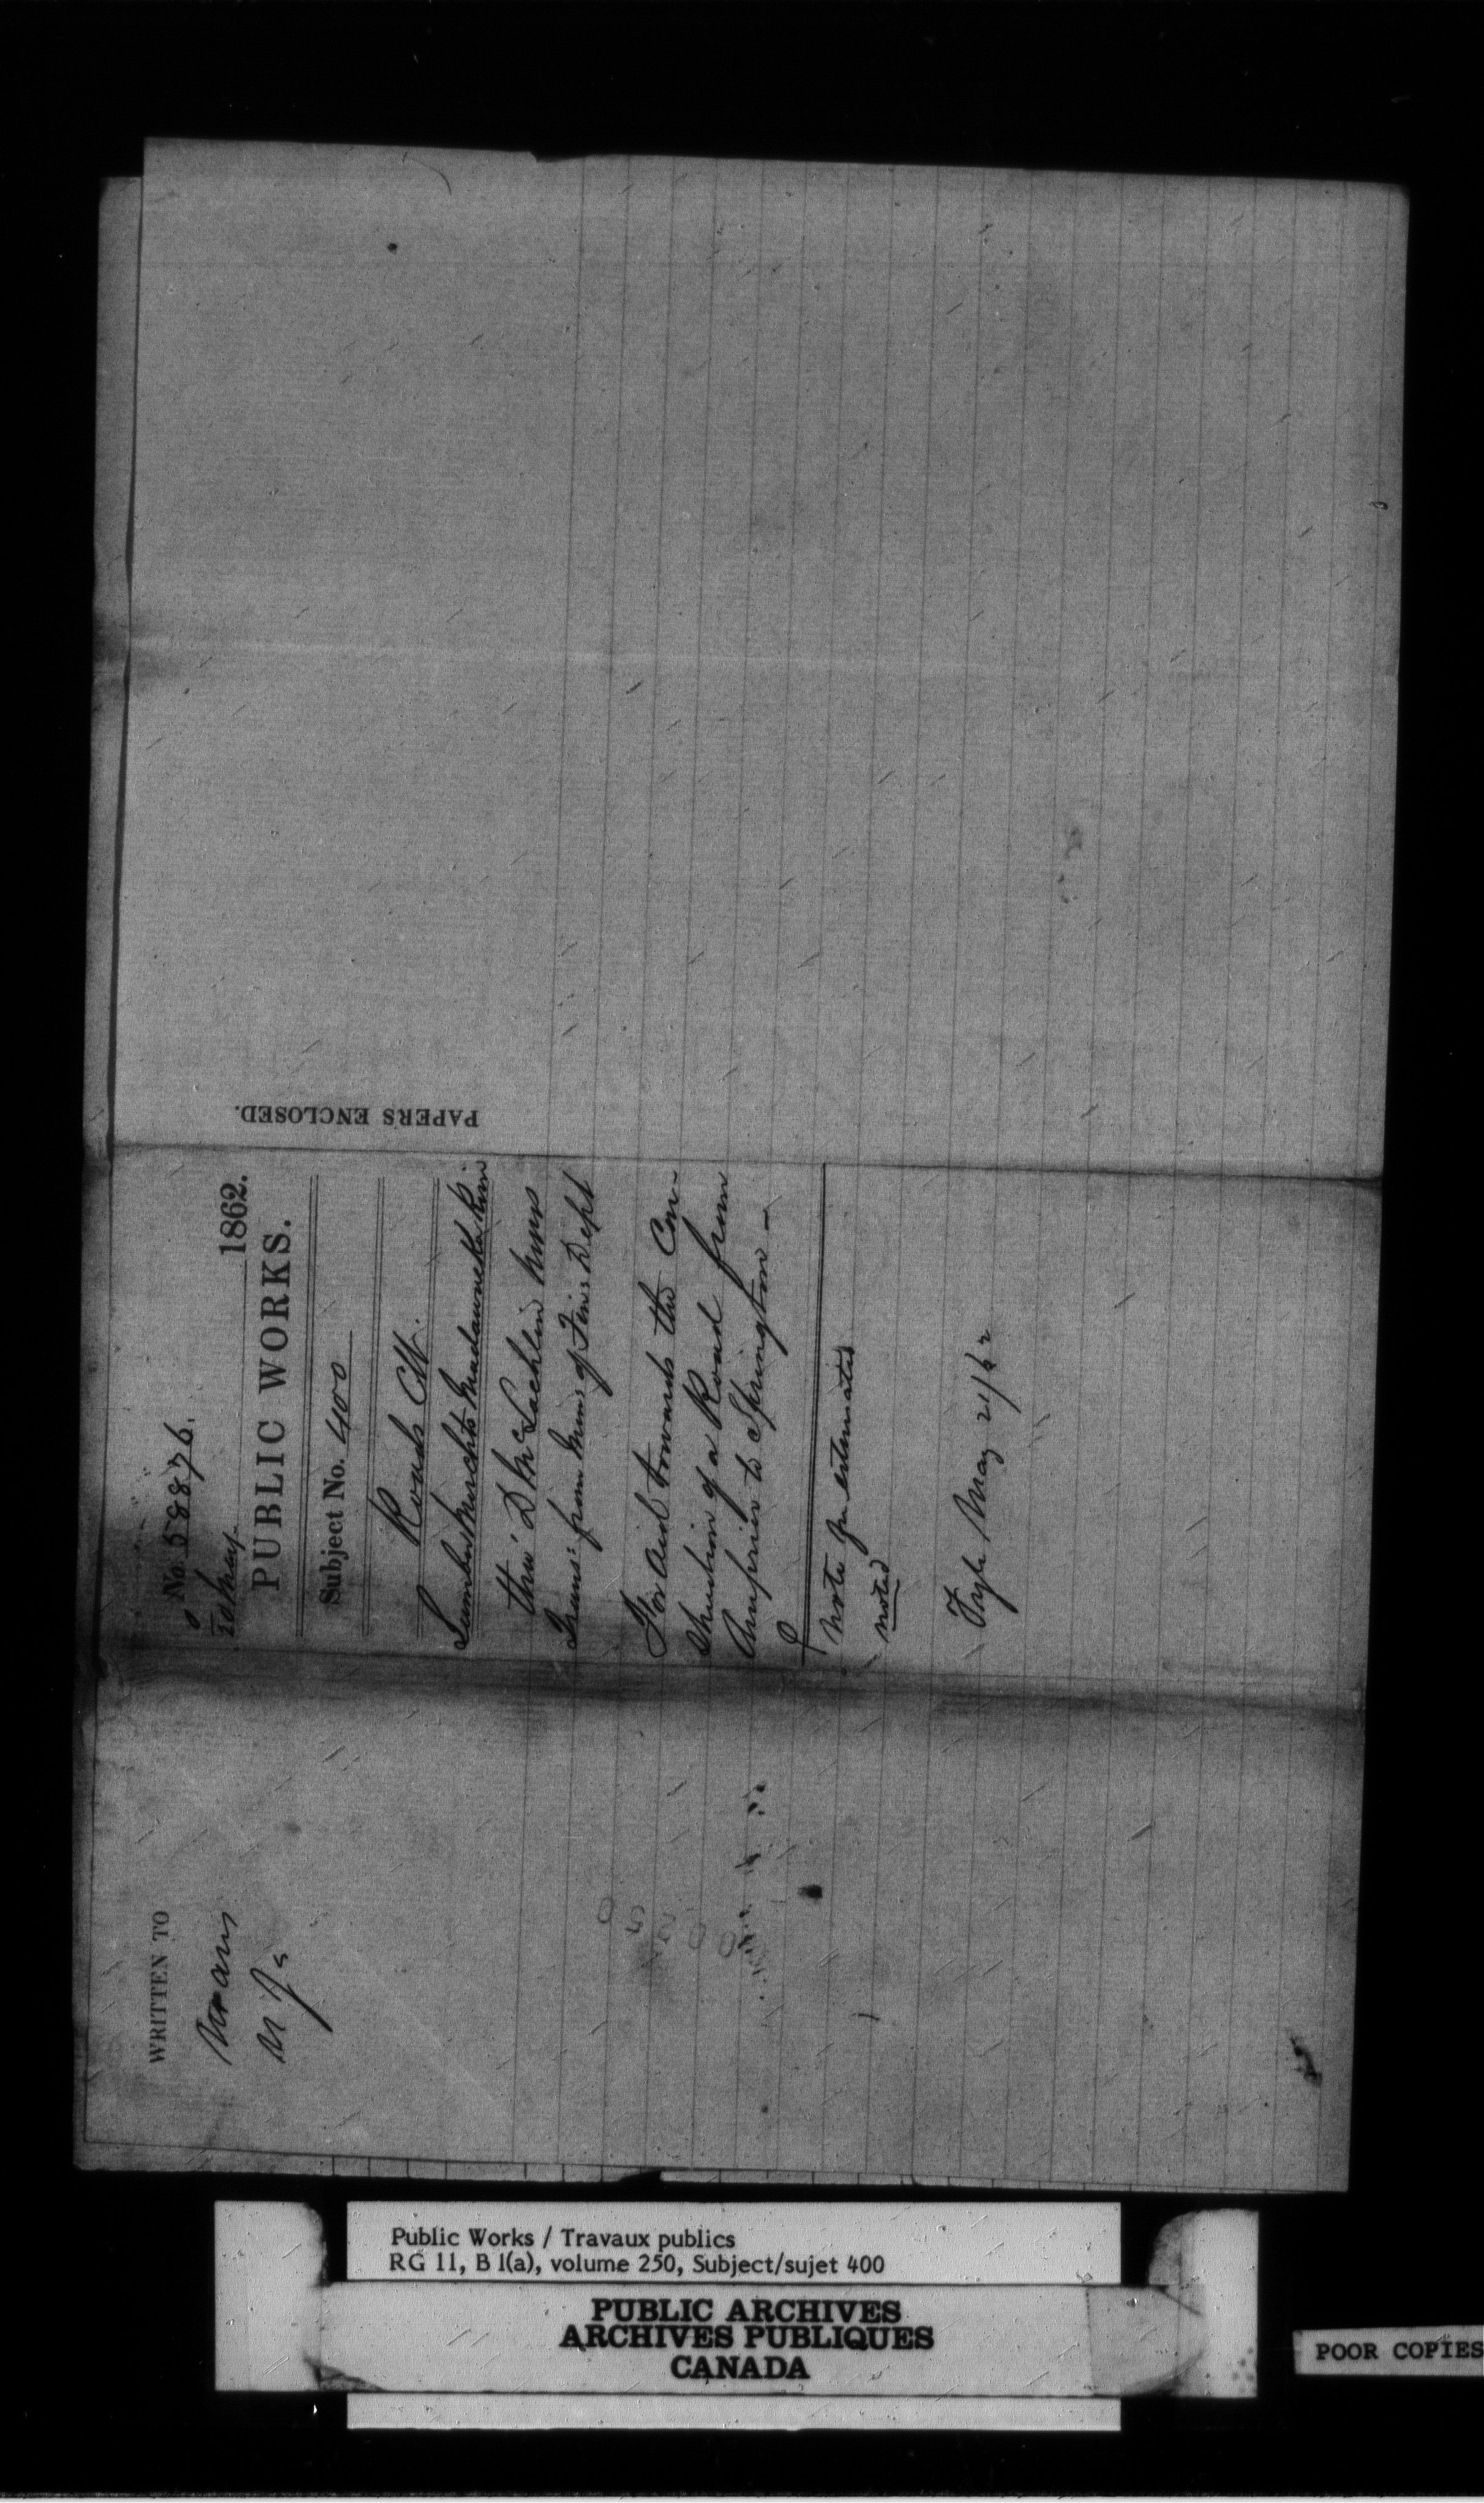 No. 58876.
20 May 1862.
PUBLIC WORKS.
Subject No. 400
Roads CW.
Lumber Merchts Madawaska River
thro' D McLachlin
Trans: from Minr of Fin: Dept
For Aid towards the Con-
struction of a Road from
Arnprior to Springtown -
Note for estimates
noted
May 21/62
PAPERS ENCLOSED.
WRITTEN TO
00250
Public Works / Travaux publics
RG 11, B 1(a), volume 250, Subject/sujet 400
PUBLIC ARCHIVES
ARCHIVES PUBLIQUES
CANADA
POOR COPIES